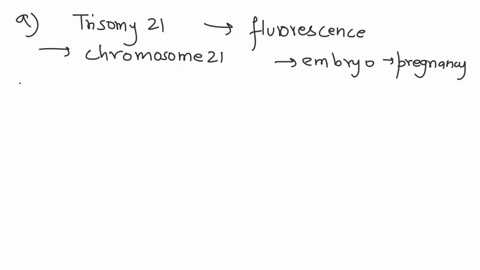 a) Trisomy 21 → fluorescence
→ chromosome 21 → embryo → pregnancy